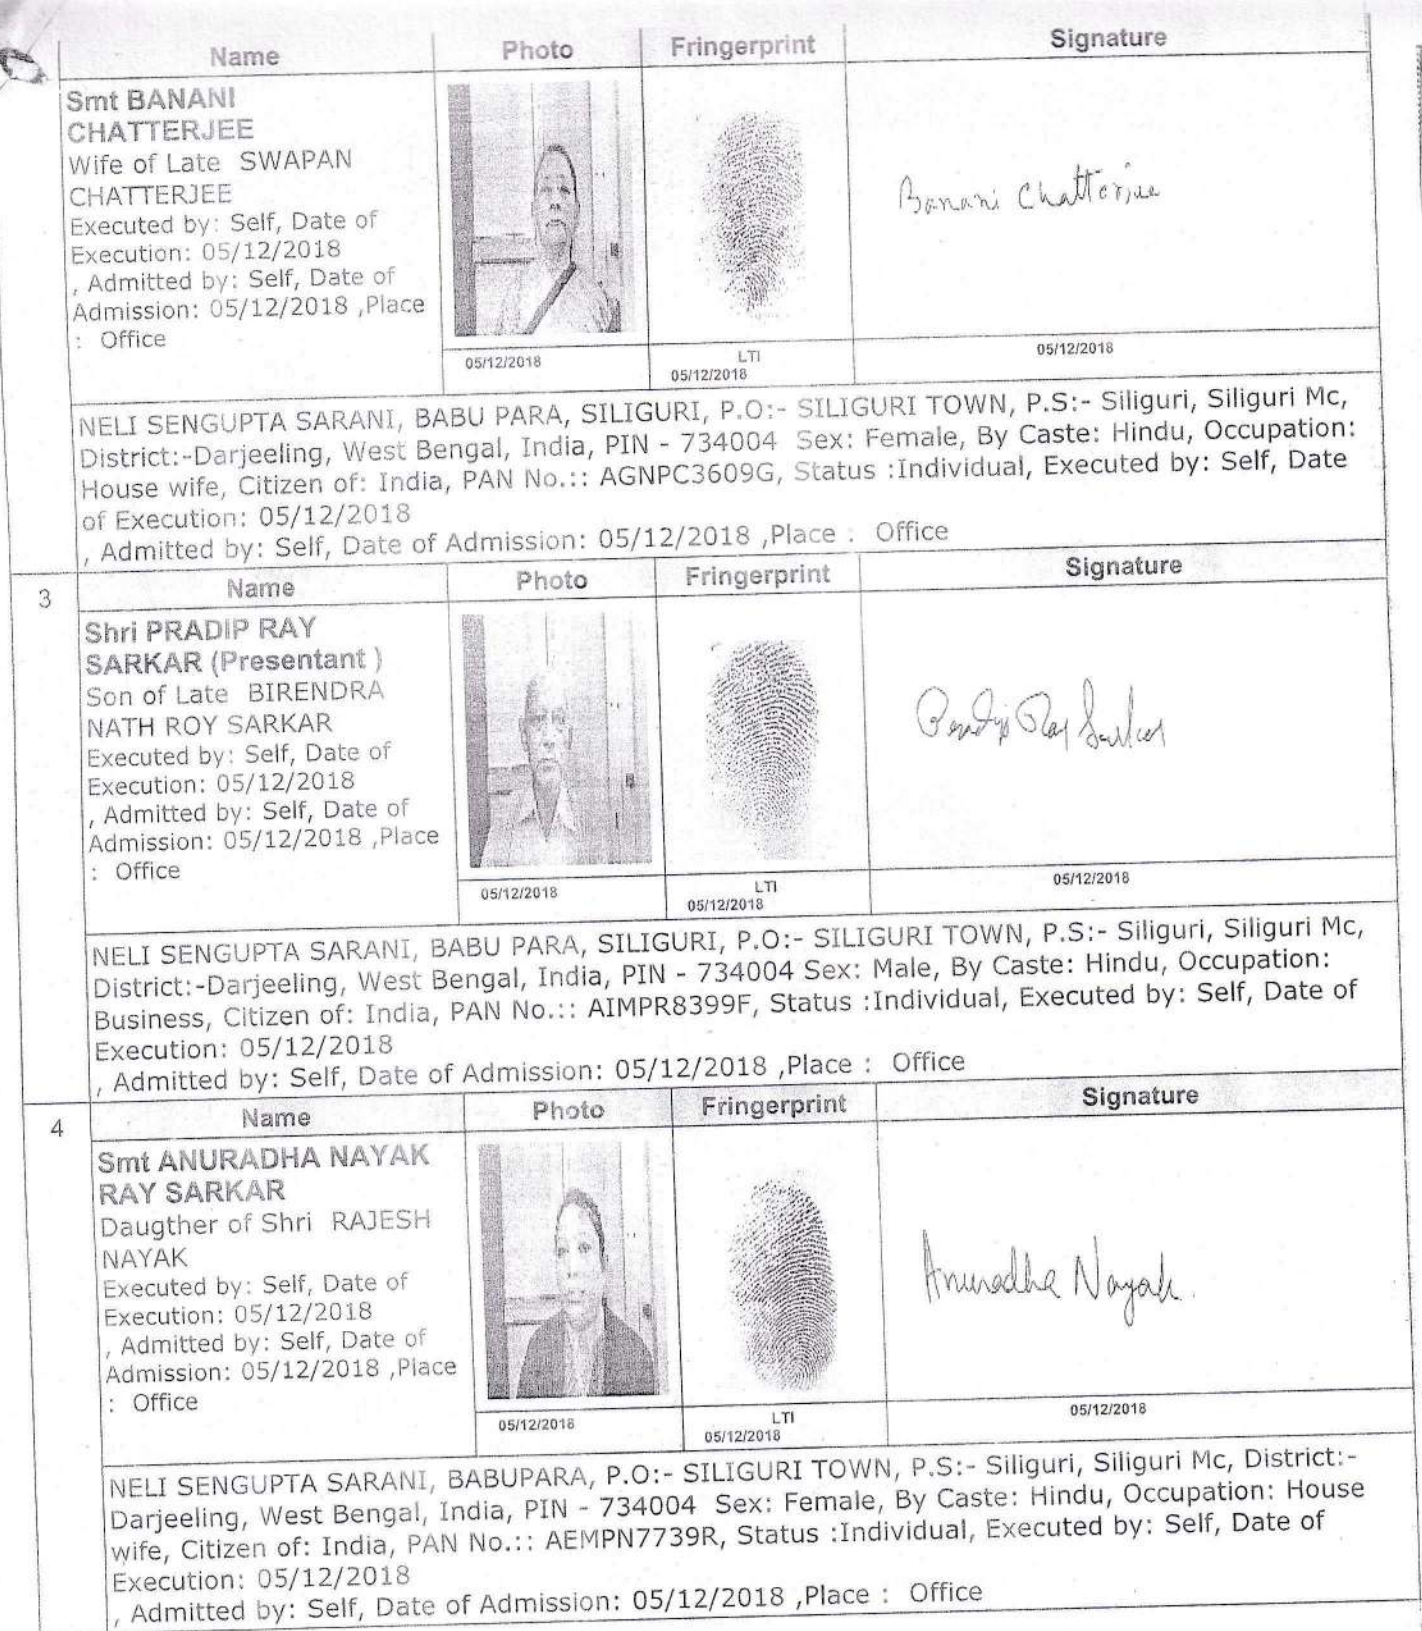 Name Photo Fringerprint Signature
Smt BANANI
CHATTERJEE
Wife of Late SWAPAN
CHATTERJEE
Executed by: Self, Date of
Execution: 05/12/2018
, Admitted by: Self, Date of
Admission: 05/12/2018 ,Place
: Office
Banani Chatterjee
05/12/2018
LTI
05/12/2018
05/12/2018
NELI SENGUPTA SARANI, BABU PARA, SILIGURI, P.O:- SILIGURI TOWN, P.S:- Siliguri, Siliguri Mc,
District:-Darjeeling, West Bengal, India, PIN - 734004 Sex: Female, By Caste: Hindu, Occupation:
House wife, Citizen of: India, PAN No.:: AGNPC3609G, Status :Individual, Executed by: Self, Date
of Execution: 05/12/2018
, Admitted by: Self, Date of Admission: 05/12/2018 ,Place : Office
3 Name Photo Fringerprint Signature
Shri PRADIP RAY
SARKAR (Presentant )
Son of Late BIRENDRA
NATH ROY SARKAR
Executed by: Self, Date of
Execution: 05/12/2018
, Admitted by: Self, Date of
Admission: 05/12/2018 ,Place
: Office
Pradip Ray Sarkar
05/12/2018
LTI
05/12/2018
05/12/2018
NELI SENGUPTA SARANI, BABU PARA, SILIGURI, P.O:- SILIGURI TOWN, P.S:- Siliguri, Siliguri Mc,
District:-Darjeeling, West Bengal, India, PIN - 734004 Sex: Male, By Caste: Hindu, Occupation:
Business, Citizen of: India, PAN No.:: AIMPR8399F, Status :Individual, Executed by: Self, Date of
Execution: 05/12/2018
, Admitted by: Self, Date of Admission: 05/12/2018 ,Place : Office
4 Name Photo Fringerprint Signature
Smt ANURADHA NAYAK
RAY SARKAR
Daugther of Shri RAJESH
NAYAK
Executed by: Self, Date of
Execution: 05/12/2018
, Admitted by: Self, Date of
Admission: 05/12/2018 ,Place
: Office
Anuradha Nayak.
05/12/2018
LTI
05/12/2018
05/12/2018
NELI SENGUPTA SARANI, BABUPARA, P.O:- SILIGURI TOWN, P.S:- Siliguri, Siliguri Mc, District:-
Darjeeling, West Bengal, India, PIN - 734004 Sex: Female, By Caste: Hindu, Occupation: House
wife, Citizen of: India, PAN No.:: AEMPN7739R, Status :Individual, Executed by: Self, Date of
Execution: 05/12/2018
, Admitted by: Self, Date of Admission: 05/12/2018 ,Place : Office